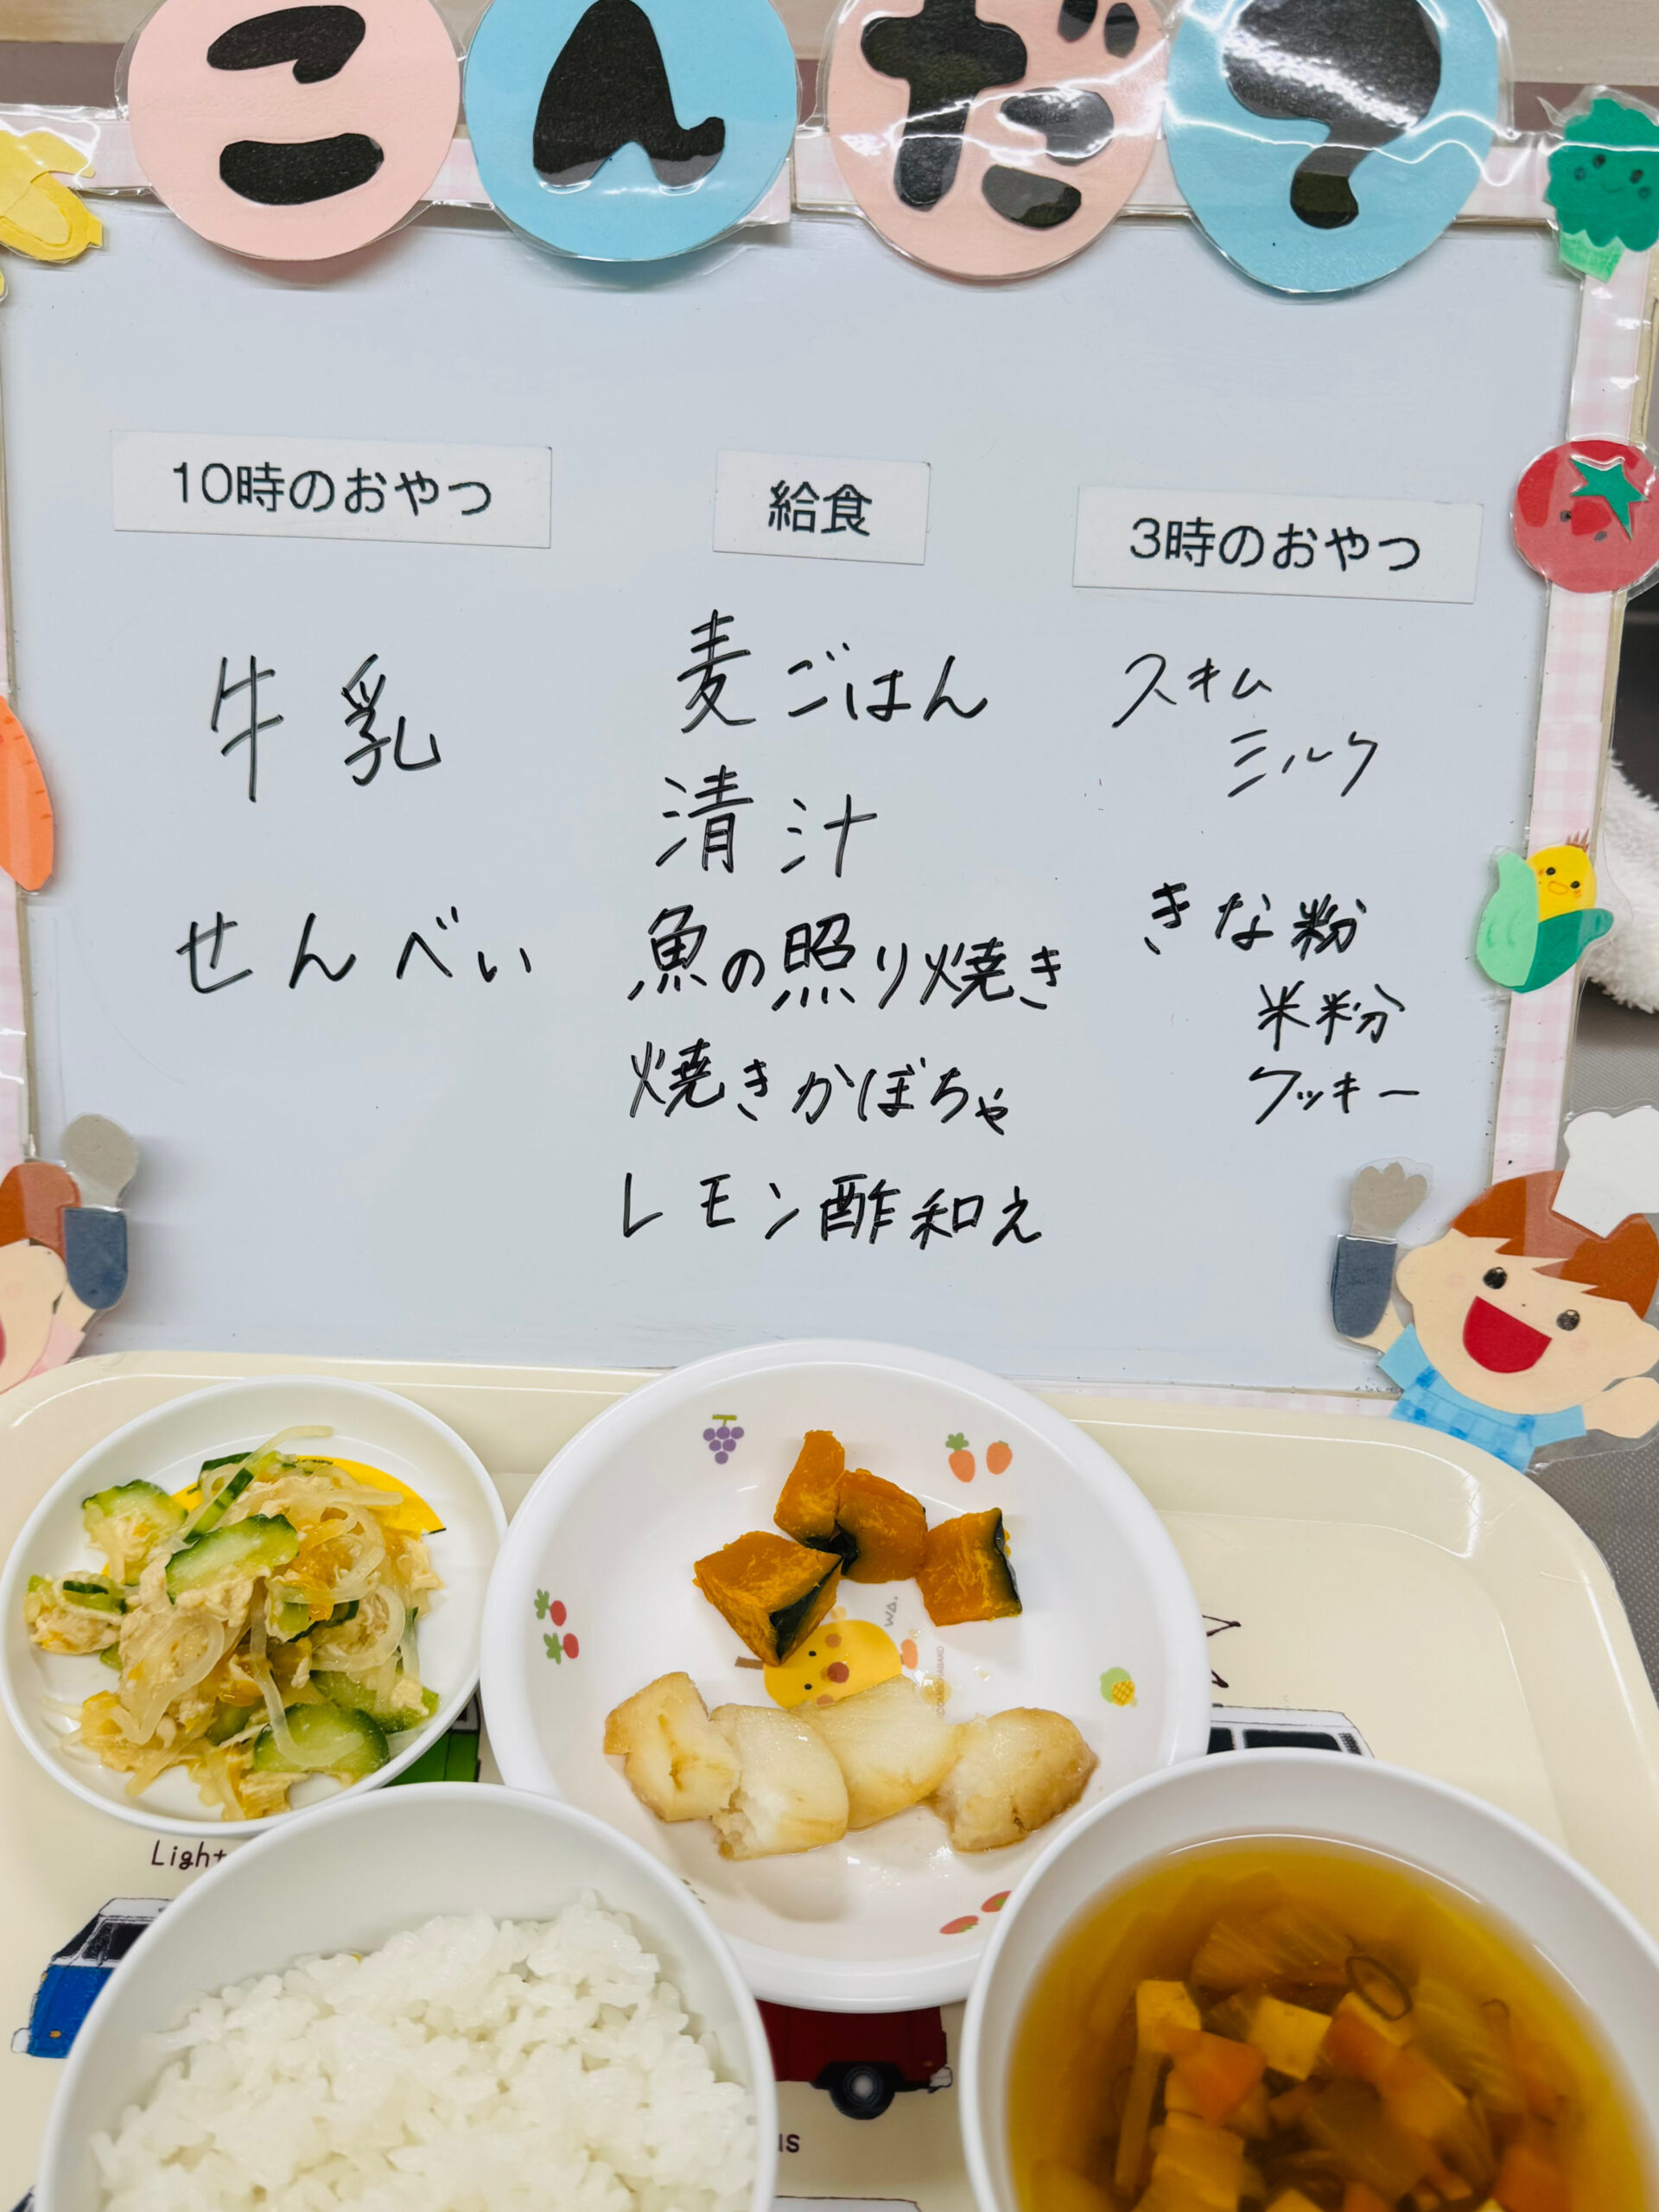 こんだ?
10時のおやつ
牛乳
せんべい
給食
麦ごはん
清汁
魚の照り焼き
焼きかぼちゃ
レモン酢和え
3時のおやつ
スキム
ミルク
きな粉
米粉
クッキー
Light